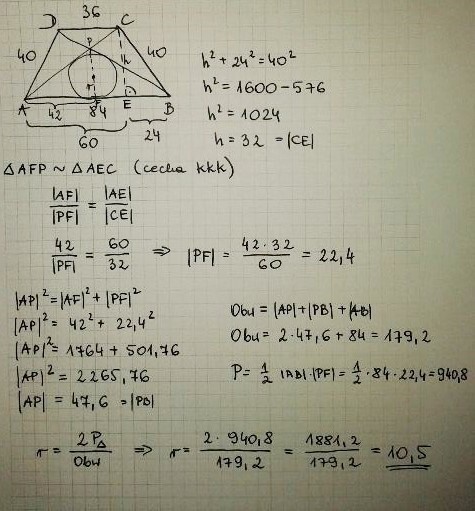 36
D C
P
40 40
h
r
A F E B
42 84
60 24
h² + 24² = 40²
h² = 1600 - 576
h² = 1024
h = 32 = |CE|
△AFP ~ △AEC (cecha kkk)
|AF| / |PF| = |AE| / |CE|
42 / |PF| = 60 / 32 ⇒ |PF| = 42·32 / 60 = 22,4
|AP|² = |AF|² + |PF|²
|AP|² = 42² + 22,4²
|AP|² = 1764 + 501,76
|AP|² = 2265,76
|AP| = 47,6 = |PB|
Obw = |AP| + |PB| + |AB|
Obw = 2·47,6 + 84 = 179,2
P = 1/2 |AB|·|PF| = 1/2 · 84 · 22,4 = 940,8
r = 2P△ / Obw ⇒ r = 2·940,8 / 179,2 = 1881,2 / 179,2 = 10,5